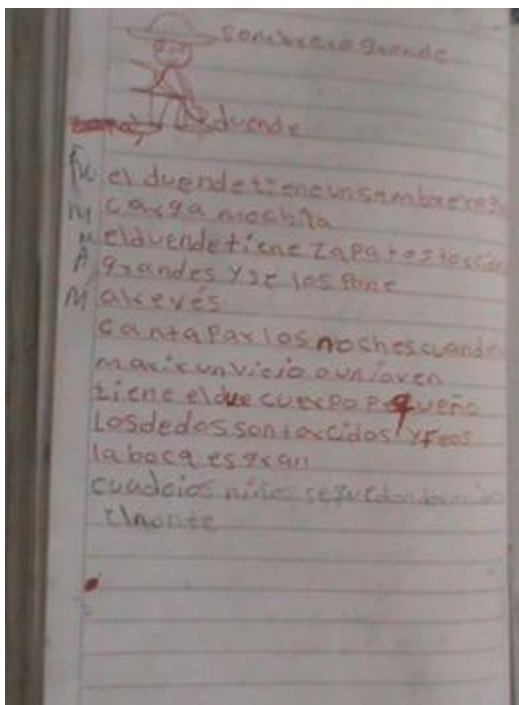 sombrero grande
duende
el duende tiene un sambrero
carga mochila
el duende tiene zapatos
grandes y se los pone
al revés
canta par los noches cuando
un viejo o un joven
tiene el due cuerpo pequeño
Los dedos son torcidos y feos
la boca es gran
niños se
el monte